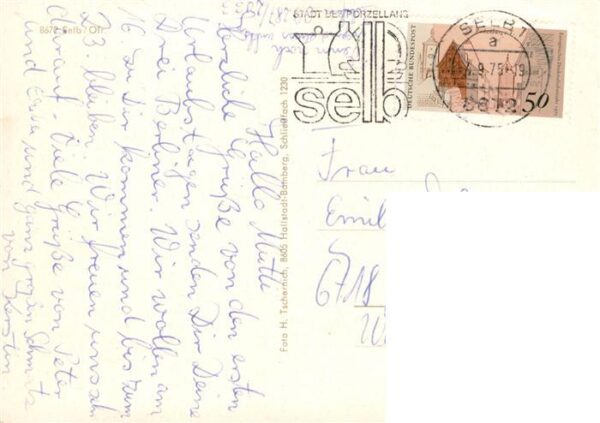 8672 Selb/Ofr.
Hallo Mutti
Herzliche Grüße von den ersten
Urlaubstagen senden Dir Deine
Drei Berliner. Wir wollen am
16. zu Dir kommen und bis zum
23. bleiben. Wir freuen uns sehr
darauf. Viele Grüße von Peter
und Erika und ganz große Schmatz
von Kerstin
Foto H. Tschernich, 8605 Hallstadt-Bamberg, Schließfach 1230
STADT DES PORZELLANS
selb
SELB 1
a
.9.75-19
8672
DEUTSCHE BUNDESPOST
50
Frau
Emil
6718